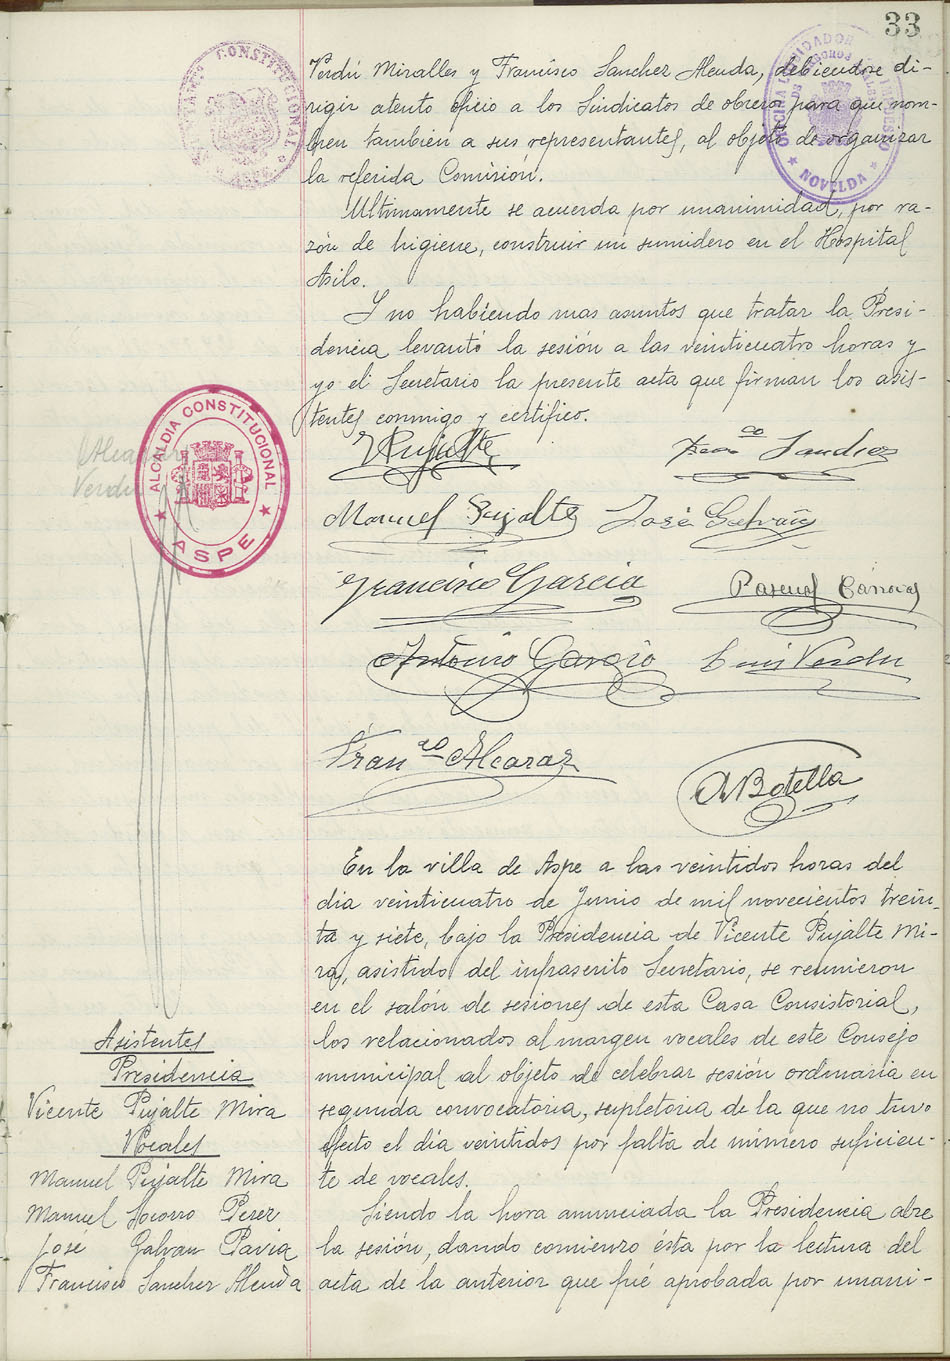 33
AYUNTAMIENTO CONSTITUCIONAL
ASPE
OFICINA LIQUIDADORA DEL IMPUESTO
NOVELDA
Verdú Miralles y Francisco Sanchez Alenda, debiendose di-
rigir atento oficio a los Sindicatos de obreros para que nom-
bren tambien a sus representantes, al objeto de organizar
la referida Comisión.
Ultimamente se acuerda por unanimidad, por ra-
zón de higiene, construir un sumidero en el Hospital
Asilo.
Y no habiendo mas asuntos que tratar la Presi-
dencia levantó la sesión a las veinticuatro horas y
yo el Secretario la presente acta que firman los asis-
tentes conmigo y certifico.
V Pujalte
Fran co Sanchez
Manuel Pujalte José Galvañ
Francisco Garcia
Pascual
Antonio Garcia Luis Verdu
Fran co Alcaraz
A Botella
Alcaraz
Verdu
ALCALDIA CONSTITUCIONAL
ASPE
En la villa de Aspe a las veintidos horas del
dia veinticuatro de Junio de mil novecientos trein-
ta y siete, bajo la Presidencia de Vicente Pujalte Mi-
ra, asistido del infrascrito Secretario, se reunieron
en el salón de sesiones de esta Casa Consistorial,
los relacionados al margen vocales de este Consejo
municipal al objeto de celebrar sesión ordinaria en
segunda convocatoria, supletoria de la que no tuvo
efecto el dia veintidos por falta de número suficien-
te de vocales.
Siendo la hora anunciada la Presidencia abre
la sesión, dando comienzo ésta por la lectura del
acta de la anterior que fué aprobada por unani-
Asistentes
Presidencia
Vicente Pujalte Mira
Vocales
Manuel Pujalte Mira
Manuel Socorro Perez
José Galvan Pavia
Francisco Sanchez Alenda